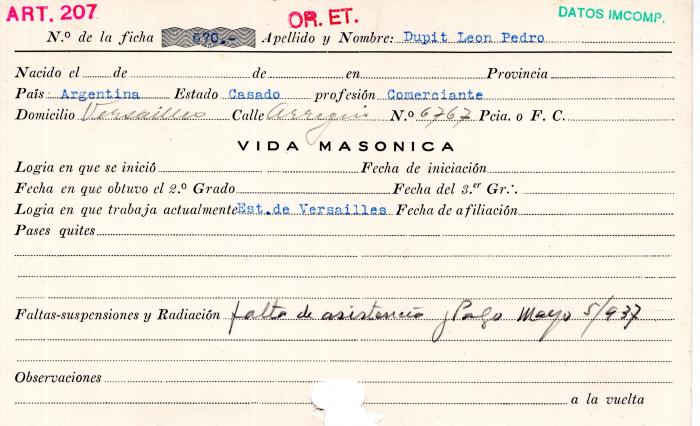 ART. 207 OR. ET. DATOS IMCOMP.
N.º de la ficha 670.- Apellido y Nombre: Dupit Leon Pedro
Nacido el de de en Provincia
País: Argentina Estado Casado profesión Comerciante
Domicilio Versailles Calle Arregui N.º 6767 Pcia. o F. C.
VIDA MASONICA
Logia en que se inició Fecha de iniciación
Fecha en que obtuvo el 2.º Grado Fecha del 3.er Gr∴
Logia en que trabaja actualmente Est.de Versailles Fecha de afiliación
Pases quites
Faltas-suspensiones y Radiación falta de asistencia y Pago Mayo 5/937
Observaciones
a la vuelta